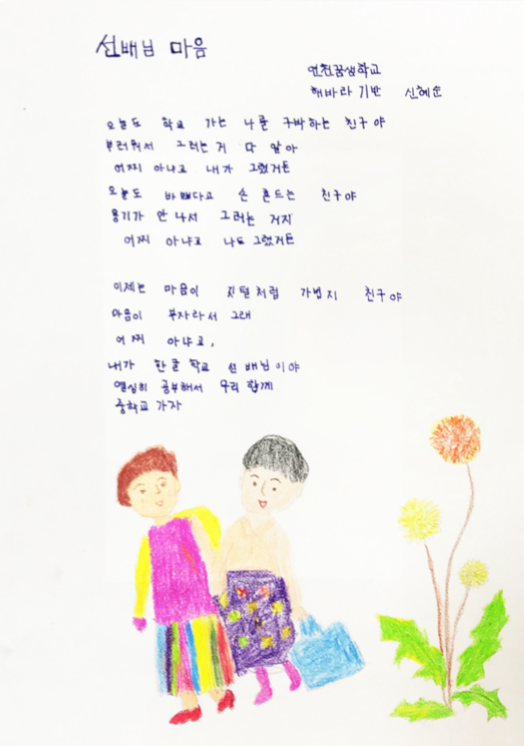 선배님 마음
연천꿈샘학교
해바라기반 신혜순
오늘도 학교 가는 나를 구박하는 친구야
부러워서 그러는 거 다 알아
어찌 아냐고 내가 그랬거든
오늘도 바쁘다고 손 흔드는 친구야
용기가 안 나서 그러는 거지
어찌 아냐고 나도 그랬거든
이제는 마음이 깃털처럼 가볍지 친구야
마음이 부자라서 그래
어찌 아냐고,
내가 한글 학교 선배님이야
열심히 공부해서 우리 함께
중학교 가자